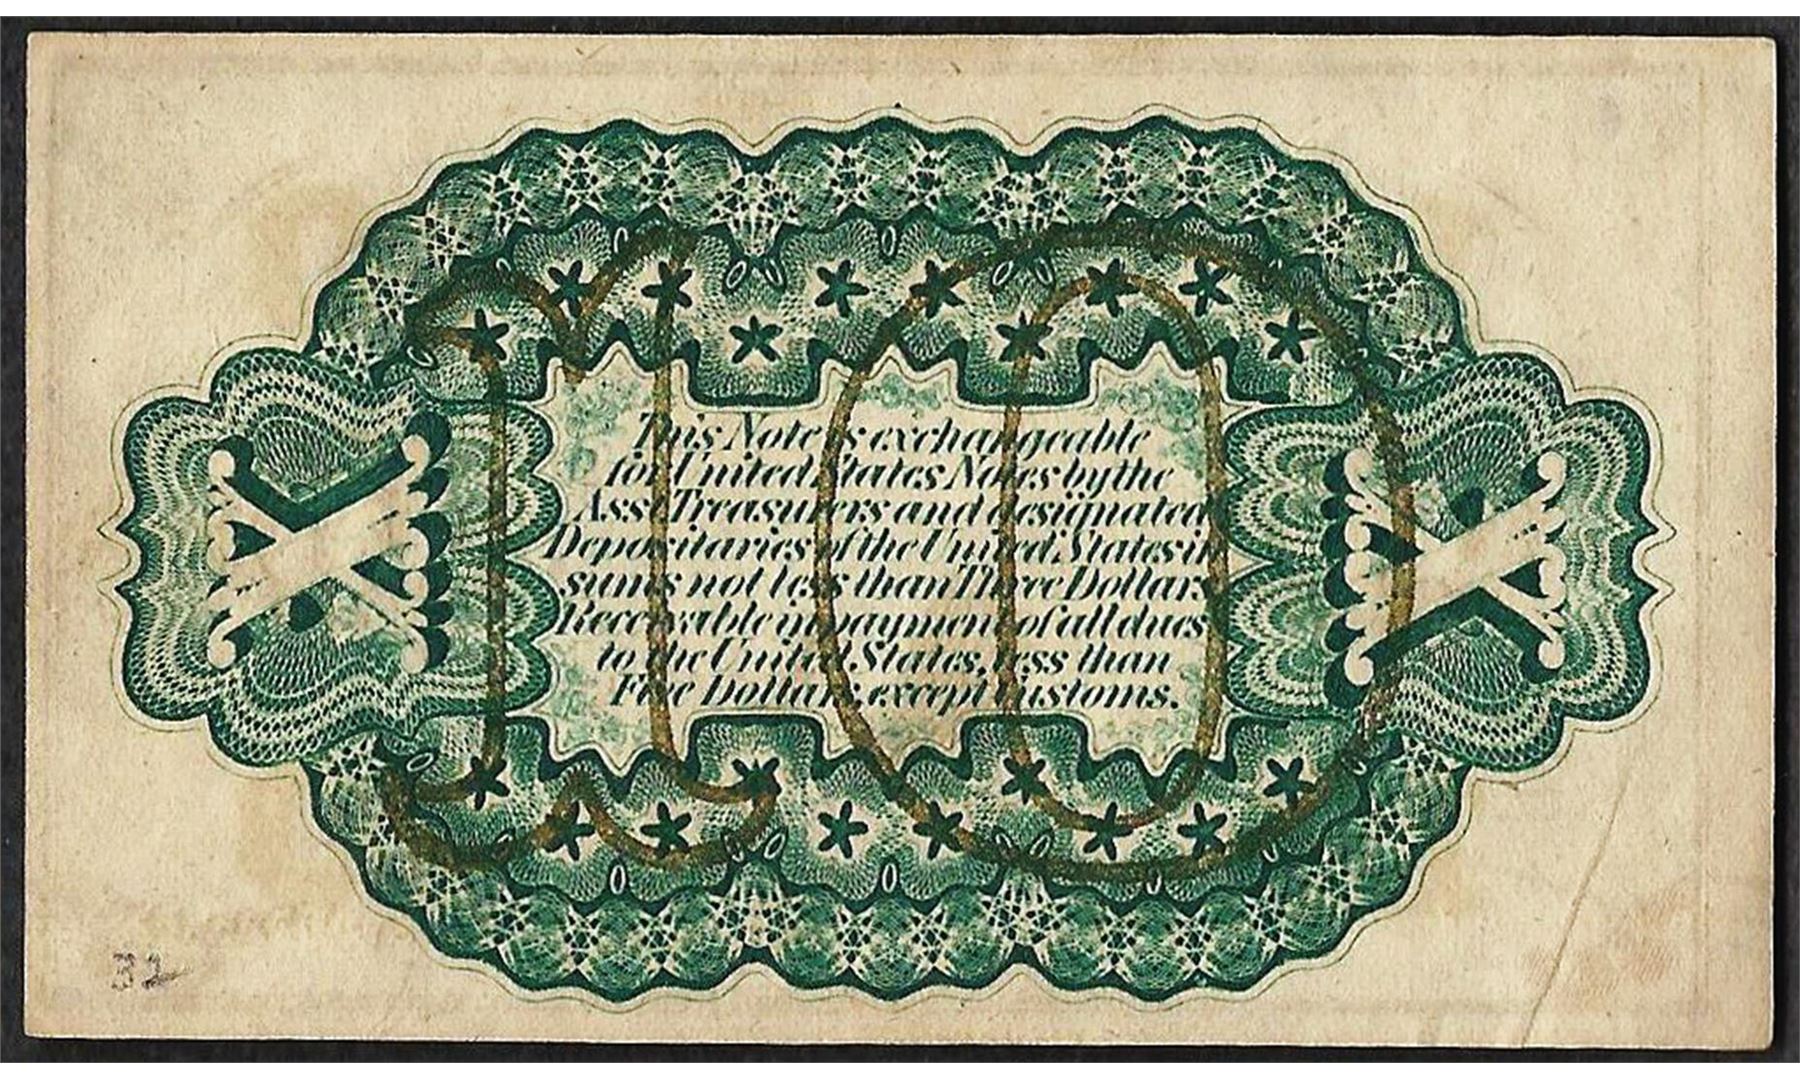 10
This Note is exchangeable
for United States Notes by the
Asst. Treasurers and designated
Depositaries of the United States in
sums not less than Three Dollars
Receivable in payment of all dues
to the United States, less than
Five Dollars, except Customs.
X
X
32